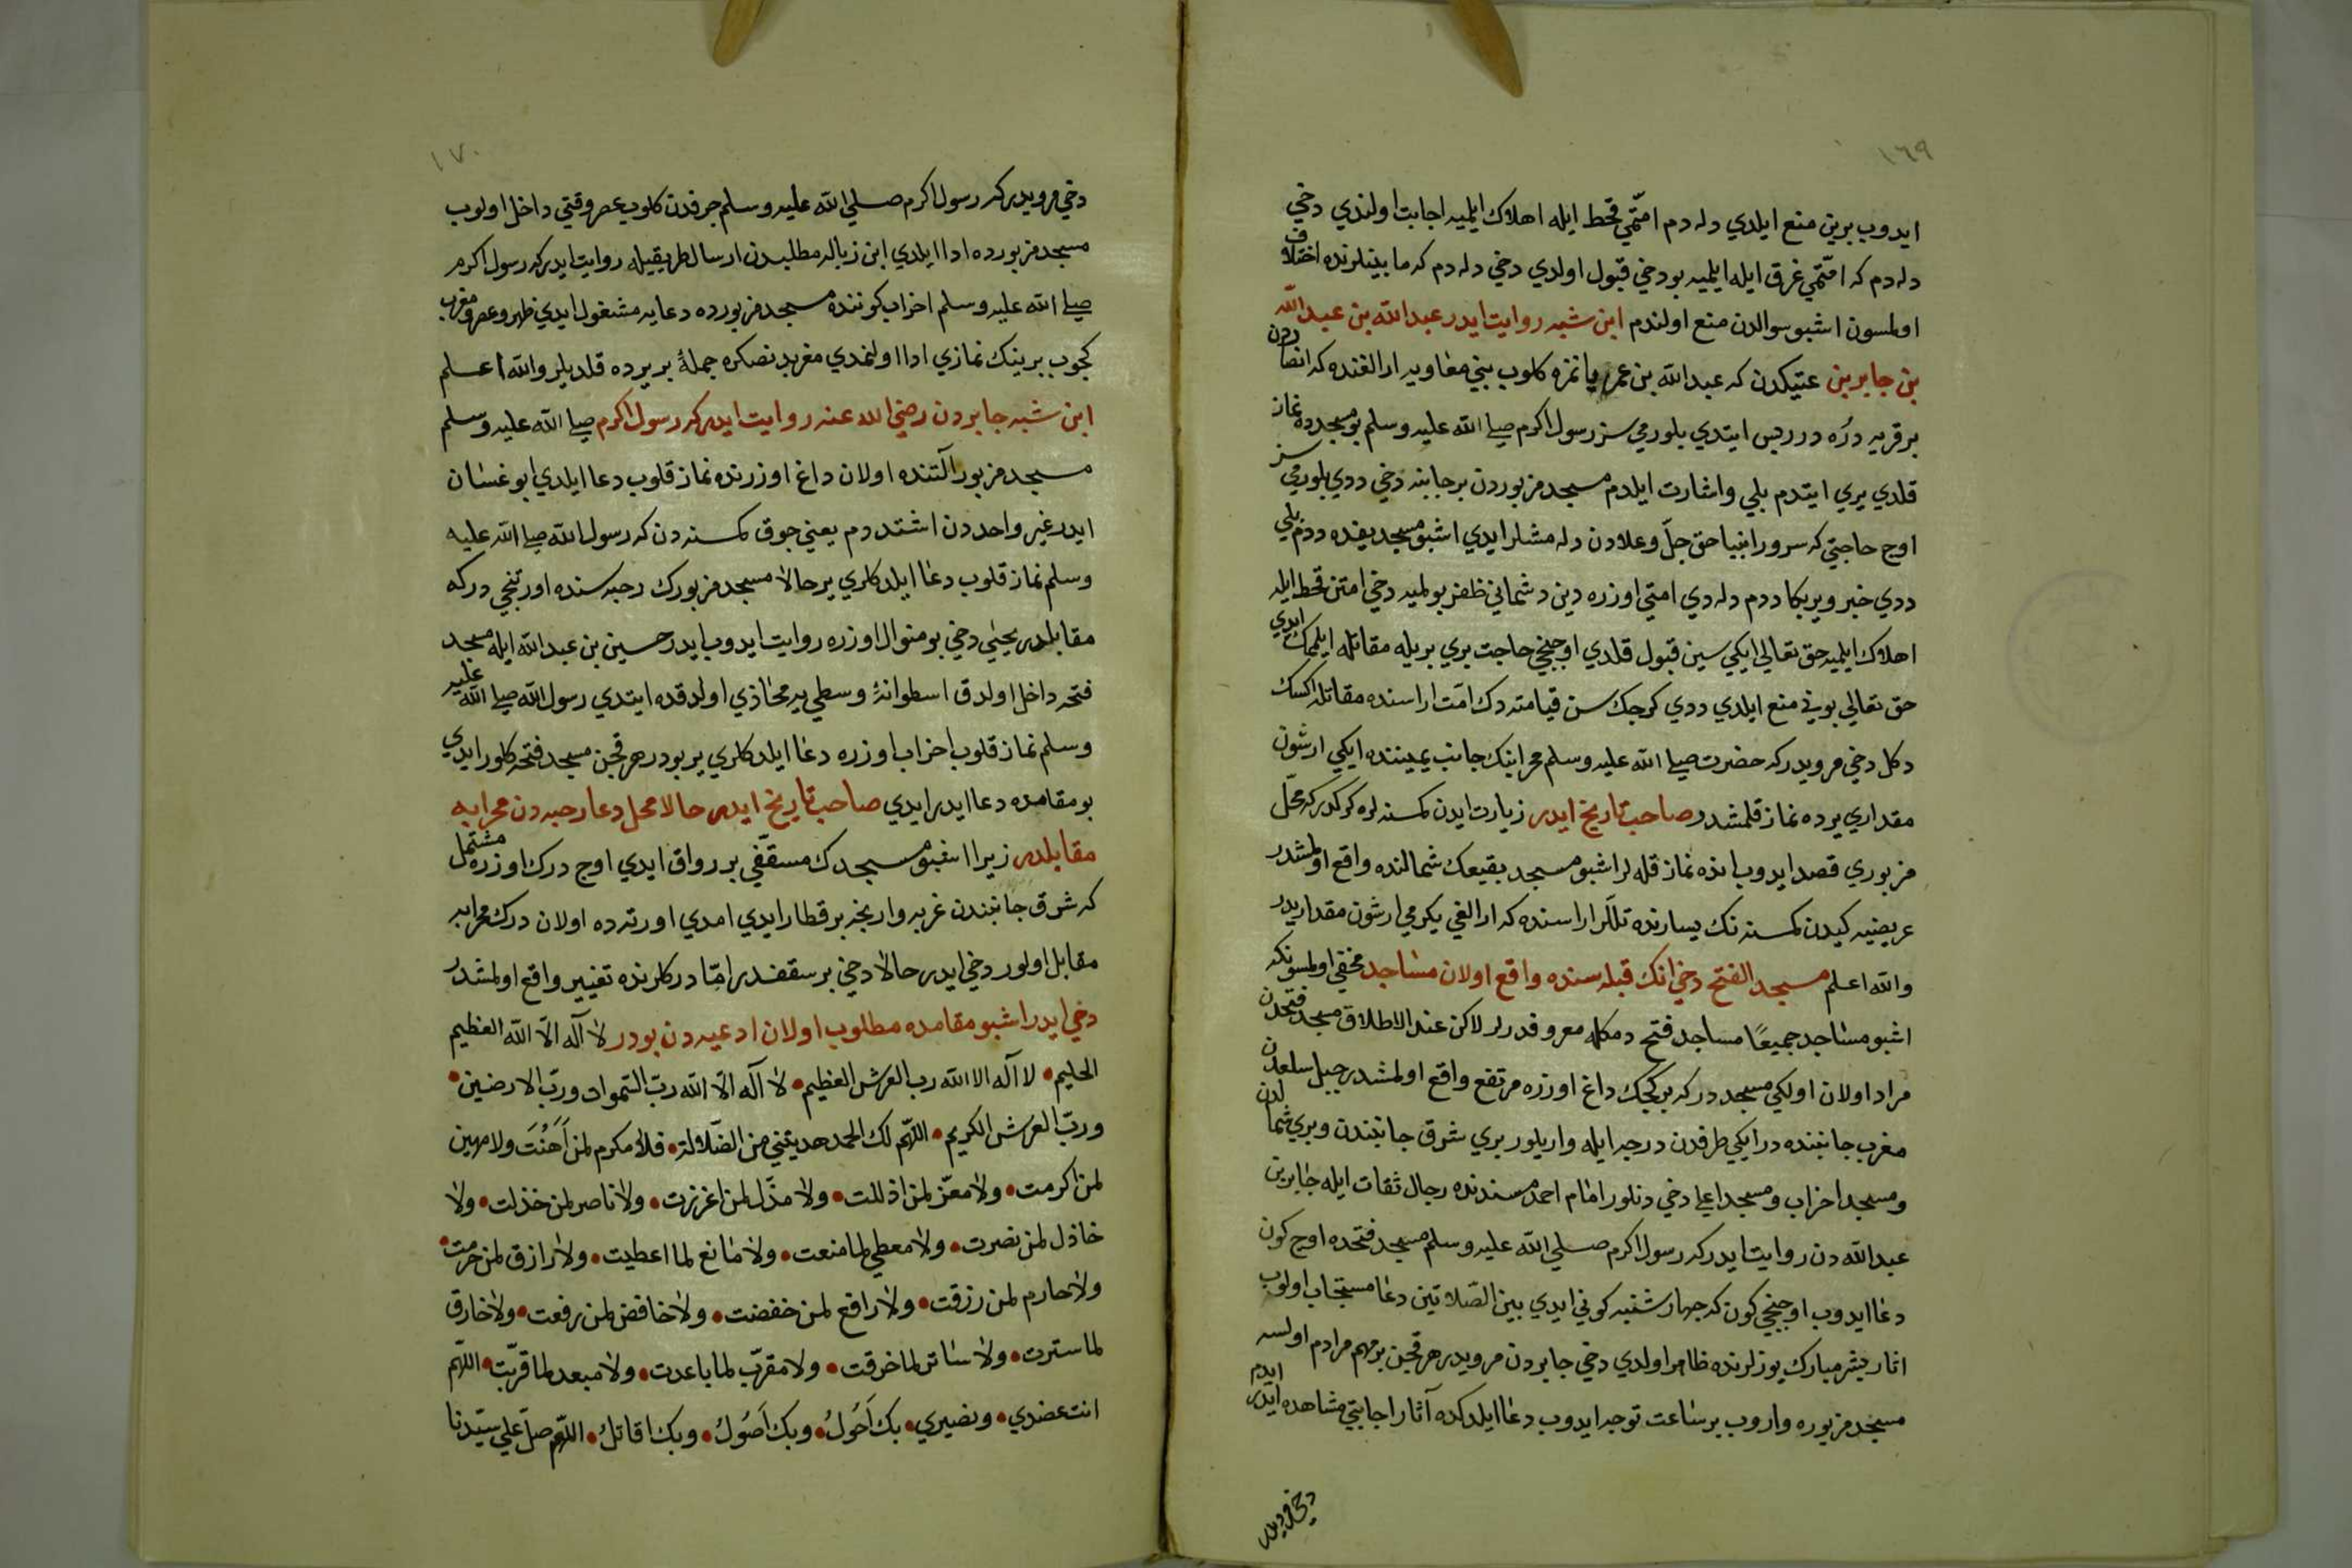 ١٦٩
ايدوب برين منع ايلدي دله دم امّتمي قحط ايله اهلاك ايلميه اجابت اولندي دخي
دله دم كه امّتمي غرق ايله ايلميه بو دخي قبول اولدي دخي دله دم كه مابينلرنده اختلاف
اولمسون اشبو سوالدن منع اولندم ابن شبه روايت ايدر عبدالله بن عبدالله
بن جابر بن عتيكدن كه عبدالله بن عمر يانمزه كلوب بني معاويه ارالغنده كه انصاردن
بر قريه در ايتدي بلورميسز رسول اكرم صلى الله عليه وسلم بو مسجدده نماز
قلدي يري ايتدم بلي واشارت ايلدم مسجد مزبوردن بر جانبنه دخي ددي بلورميسز
اوج حاجتي كه سرور انبيا حق جلّ وعلادن دله مشلر ايدي اشبو مسجد يعنده ددم بلي
ددي خبر ويربكا ددم دله دي امتي اوزره دين دشماني ظفر بولميه دخي امتن قحط ايله
اهلاك ايلميه حق تعالى ايكي سين قبول قلدي اوجنجي حاجت بري بريله مقاتله ايلمك ايدي
حق تعالى بوني منع ايلدي ددي كرجك سن قيامته دك امّت اراسنده مقاتله اكسك
دكل دخي مرويدركه حضرت صلى الله عليه وسلم محرابنك جانب يميننده ايكي ارشون
مقداري يرده نماز قلمشدر صاحب تاريخ ايدر زيارت ايدن كمسنه لره كركدركه محلّ
مزبوري قصد ايدوب انده نماز قله لر اشبو مسجد بقيعك شمالنده واقع اولمشدر
عريضيه كيدن كمسنه نك يسارنده تللّر اراسنده كه ارالغي يكرمي ارشون مقداريدر
والله اعلم مسجد الفتح دخي انك قبله سنده واقع اولان مساجد مخفي اولمسونكه
اشبو مساجد جميعًا مساجد فتح دمكله معروفدرلر لاكن عند الاطلاق مسجد فتحدن
مراد اولان اولكي مسجددركه بر كجك داغ اوزره مرتفع واقع اولمشدر جبل سلعدن
مغرب جانبنده در ايكي طرفدن درجه ايله واريلور بري شرق جانبندن وبري شمالدن
ومسجد احزاب ومسجد اعلي دخي دنلور امام احمد مسندنده رجال ثقات ايله جابر بن
عبدالله دن روايت ايدركه رسول اكرم صلى الله عليه وسلم مسجد فتحده اوج كون
دعا ايدوب اوجنجي كون كه جهارشنبه كوني ايدي بين الصّلاتين دعا مستجاب اولوب
اثار بشر مبارك يوزلرنده ظاهر اولدي دخي جابردن مرويدر هر قجن بر مهم مرادم اولسه
مسجد مزبوره واروب بر ساعت توجه ايدوب دعا ايلدكده آثار اجابتي مشاهده ايدر ايدم
دخي مرويدر
١٧٠
دخي مرويدركه رسول اكرم صلى الله عليه وسلم جرفدن كلوب عصر وقتي داخل اولوب
مسجد مزبورده ادا ايلدي ابن زباله مطلبدن ارسال طريقيله روايت ايدركه رسول اكرم
صلى الله عليه وسلم احزاب كوننده مسجد مزبورده دعايه مشغول ايدي ظهر وعصر ومغرب
كجوب برينك نمازي ادا اولنمدي مغربدنصكره جملهٔ بر يرده قلديلر والله اعلم
ابن شبه جابردن رضي الله عنه روايت ايدركه رسول اكرم صلى الله عليه وسلم
مسجد مزبور آلتنده اولان داغ اوزرنده نماز قلوب دعا ايلدي ابو غسان
ايدر غير واحددن اشتدم يعني جوق كمسنه دن كه رسول الله صلى الله عليه
وسلم نماز قلوب دعا ايلدكلري ير حالا مسجد مزبورك رحبه سنده اورتنجي دركه
مقابلدر يحيٰي دخي بو منوال اوزره روايت ايدوب ايدر حسين بن عبدالله ايله مسجد
فتحه داخل اولدق اسطوانهٔ وسطي يه محاذي اولدقده ايتدي رسول الله صلى الله عليه
وسلم نماز قلوب احزاب اوزره دعا ايلدكلري ير بودر هر قجن مسجد فتحه كلور ايدي
بو مقامده دعا ايدر ايدي صاحب تاريخ ايدر حالا محل دعا رحبه دن محرابه
مقابلدر زيرا اشبو مسجدك مسقّفي بر رواق ايدي اوج درك اوزره مشتمل
كه شرق جانبندن غربه وارنجه بر قطار ايدي امدي اورته ده اولان درك محرابه
مقابل اولور دخي ايدر حالا دخي بر سقفدر امّا دركلرنده تغيير واقع اولمشدر
دخي ايدر اشبو مقامده مطلوب اولان ادعيه دن بودر لا آله الّا الله العظيم
الحليم • لا آله الا الله رب العرش العظيم • لا آله الّا الله ربّ السّموات وربّ الارضين •
وربّ العرش الكريم • اللهمّ لك الحمد هديتني من الضّلالة • فلا مكرم لمن اَهَنْتَ ولا مهين
لمن اكرمت • ولا معزّ لمن اذللت • ولا مذّل لمن اعززت • ولا ناصر لمن خذلت • ولا
خاذل لمن نصرت • ولا معطي لما منعت • ولا مانع لما اعطيت • ولا رازق لمن حرمت •
ولا حارم لمن رزقت • ولا رافع لمن خفضت • ولا خافض لمن رفعت • ولا خارق
لما سترت • ولا ساتر لما خرقت • ولا مقرّب لما باعدت • ولا مبعد لما قرّبت • اللهمّ
انت عضدي • ونصيري • بك اَحُولُ • وبك اَصُولُ • وبك اقاتلُ • اللهمّ صلّ على سيّدنا